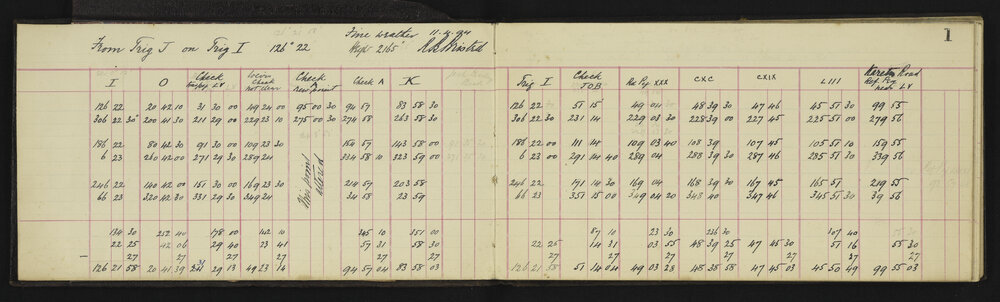 1
From Trig J on Trig I 126° 22 Fine weather 11.4.94
Hgt 2165'
I O Check LV Check Check new point Check A K Trig I Check JOB Re Peg XXX CXC CXIX LIII Kareta Road Ref Peg near LV
126 22 20 42 10 31 30 00 49 24 00 95 00 30 94 57 83 58 30 126 22 51 15 49 04 48 39 30 47 46 45 51 30 99 55
306 22 30 200 41 30 211 29 00 229 23 10 275 00 30 274 58 263 58 30 306 22 30 231 14 229 03 30 228 39 00 227 45 225 51 00 279 56
186 22 80 42 30 91 30 00 109 23 30 154 57 143 58 00 186 22 00 111 14 109 03 40 108 39 107 45 105 51 10 159 55
6 23 260 42 00 271 29 30 289 24 334 58 10 323 59 00 6 23 00 291 14 40 289 04 288 39 30 287 46 285 51 30 339 56
246 22 140 42 00 151 30 00 169 23 30 214 57 203 58 246 22 171 14 30 169 04 168 39 30 167 45 165 51 219 55
66 23 320 42 30 331 29 30 349 24 34 58 23 59 66 23 351 15 00 349 04 20 348 40 347 46 345 51 30 39 56
This point altered
134 30 252 40 178 00 142 10 345 10 351 00 87 10 23 30 236 30 107 40
22 25 42 06 29 40 23 41 57 31 58 30 22 25 14 31 03 55 48 39 25 47 45 30 51 16 55 30
27 27 27 27 27 27 27 27 27 27 27 27
126 21 58 20 41 39 31 29 13 49 23 14 94 57 04 83 58 03 126 21 58 51 14 04 49 03 28 48 38 58 47 45 03 45 50 49 99 55 03